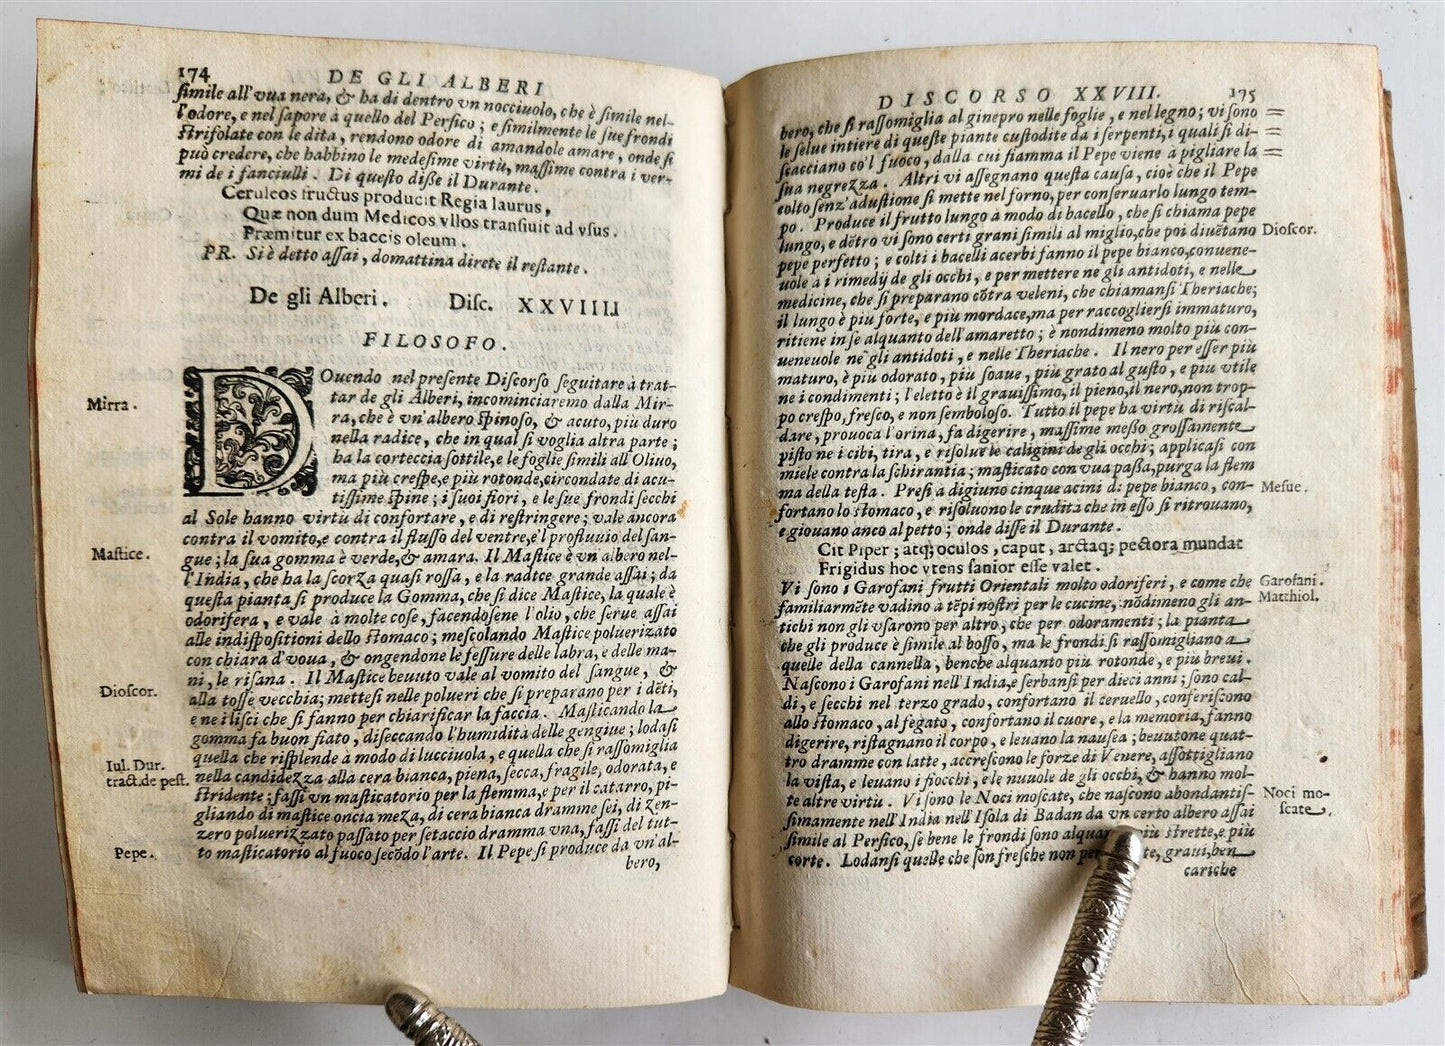 174
DE GLI ALBERI
simile all'vua nera, & ha di dentro vn nocciuolo, che è simile nel-
l'odore, e nel sapore à quello del Persico; e similmente le sue frondi
strifolate con le dita, rendono odore di amandole amare, onde si
può credere, che habbino le medesime virtù, massime contra i ver-
mi de i fanciulli. Di questo disse il Durante.
Ceruleos fructus producit Regia laurus,
Quæ non dum Medicos vllos transiuit ad vsus.
Præmitur ex baccis oleum.
PR. Si è detto assai, domattina direte il restante.
De gli Alberi. Disc. XXVIIII
FILOSOFO.
Mirra.
DOuendo nel presente Discorso seguitare à trat-
tar de gli Alberi, incominciaremo dalla Mir-
ra, che è vn'albero spinoso, & acuto, più duro
nella radice, che in qual si voglia altra parte;
ha la corteccia sottile, e le foglie simili all'Oliuo,
ma più crespe, e più rotonde, circondate di acu-
tissime spine; i suoi fiori, e le sue frondi secchi
al Sole hanno virtù di confortare, e di restringere; vale ancora
contra il vomito, e contra il flusso del ventre, e'l profluuio del san-
Mastice.
gue; la sua gomma è verde, & amara. Il Mastice è vn albero nel-
l'India, che ha la scorza quasi rossa, e la radice grande assai; da
questa pianta si produce la Gomma, che si dice Mastice, la quale è
odorifera, e vale à molte cose, facendosene l'olio, che serue assai
alle indispositioni dello stomaco; mescolando Mastice poluerizato
con chiara d'voua, & ongendone le fessure delle labra, e delle ma-
ni, le risana. Il Mastice beuuto vale al vomito del sangue, &
Dioscor.
alla tosse vecchia; mettesi nelle polueri che si preparano per i dēti,
e ne i lisci che si fanno per chiarificar la faccia. Masticando la
gomma fa buon fiato, diseccando l'humidità delle gengiue; lodasi
quella che risplende à modo di lucciuola, e quella che si rassomiglia
Iul. Dur.
tract. de pest.
nella candidezza alla cera bianca, piena, secca, fragile, odorata, e
stridente; fassi vn masticatorio per la flemma, e per il catarro, pi-
gliando di mastice oncia meza, di cera bianca dramme sei, di zen-
zero poluerizzato passato per setaccio dramma vna, fassi del tut-
Pepe.
to masticatorio al fuoco secōdo l'arte. Il Pepe si produce da vn'al-
bero,
DISCORSO XXVIII.
175
bero, che si rassomiglia al ginepro nelle foglie, e nel legno; vi sono
le selue intiere di queste piante custodite da i serpenti, i quali si di-
scacciano co'l fuoco, dalla cui fiamma il Pepe viene à pigliare la
sua negrezza. Altri vi assegnano questa causa, cioè che il Pepe
colto senz'adustione si mette nel forno, per conseruarlo lungo tem-
po. Produce il frutto lungo à modo di bacello, che si chiama pepe
lungo, e dētro vi sono certi grani simili al miglio, che poi diuētano
Dioscor.
pepe perfetto; e colti i bacelli acerbi fanno il pepe bianco, conuene-
uole à i rimedij de gli occhi, e per mettere ne gli antidoti, e nelle
medicine, che si preparano cōtra veleni, che chiamansi Theriache;
il lungo è più forte, e più mordace, ma per raccogliersi immaturo,
ritiene in se alquanto dell'amaretto; è nondimeno molto più con-
ueneuole ne gli antidoti, e nelle Theriache. Il nero per esser più
maturo, è più odorato, più soaue, più grato al gusto, e più vtile
ne i condimenti; l'eletto è il grauissimo, il pieno, il nero, non trop-
po crespo, fresco, e non semboloso. Tutto il pepe ha virtù di riscal-
dare, prouoca l'orina, fa digerire, massime messo grossamente
pisto ne i cibi, tira, e risolue le caligini de gli occhi; applicasi con
miele contra la schirantia; masticato con vua passa, purga la flem
ma della testa. Presi à digiuno cinque acini di pepe bianco, con-
Mesue.
fortano lo stomaco, e risoluono le crudità che in esso si ritrouano,
e giouano anco al petto; onde disse il Durante.
Cit Piper; atq; oculos, caput, arctaq; pectora mundat
Frigidus hoc vtens sanior esse valet.
Vi sono i Garofani frutti Orientali molto odoriferi, e come che
Garofani.
familiarmēte vadino à tēpi nostri per le cucine, nōdimeno gli an-
Matthiol.
tichi non gli vsarono per altro, che per odoramenti; la pianta
che gli produce è simile al bosso, ma le frondi si rassomigliano a
quelle della cannella, benche alquanto più rotonde, e più breui.
Nascono i Garofani nell'India, e serbansi per dieci anni; sono cal-
di, e secchi nel terzo grado, confortano il ceruello, conferiscono
allo stomaco, al fegato, confortano il cuore, e la memoria, fanno
digerire, ristagnano il corpo, e leuano la nausea; beuutone quat-
tro dramme con latte, accrescono le forze di Venere, assottigliano
la vista, e leuano i fiocchi, e le nuuole de gli occhi, & hanno mol-
te altre virtù. Vi sono le Noci moscate, che nascono abondantis-
Noci mo-
scate.
simamente nell'India nell'Isola di Badan da vn certo albero assai
simile al Persico, se bene le frondi sono più strette, e più
corte. Lodansi quelle che son fresche non graui, ben
cariche